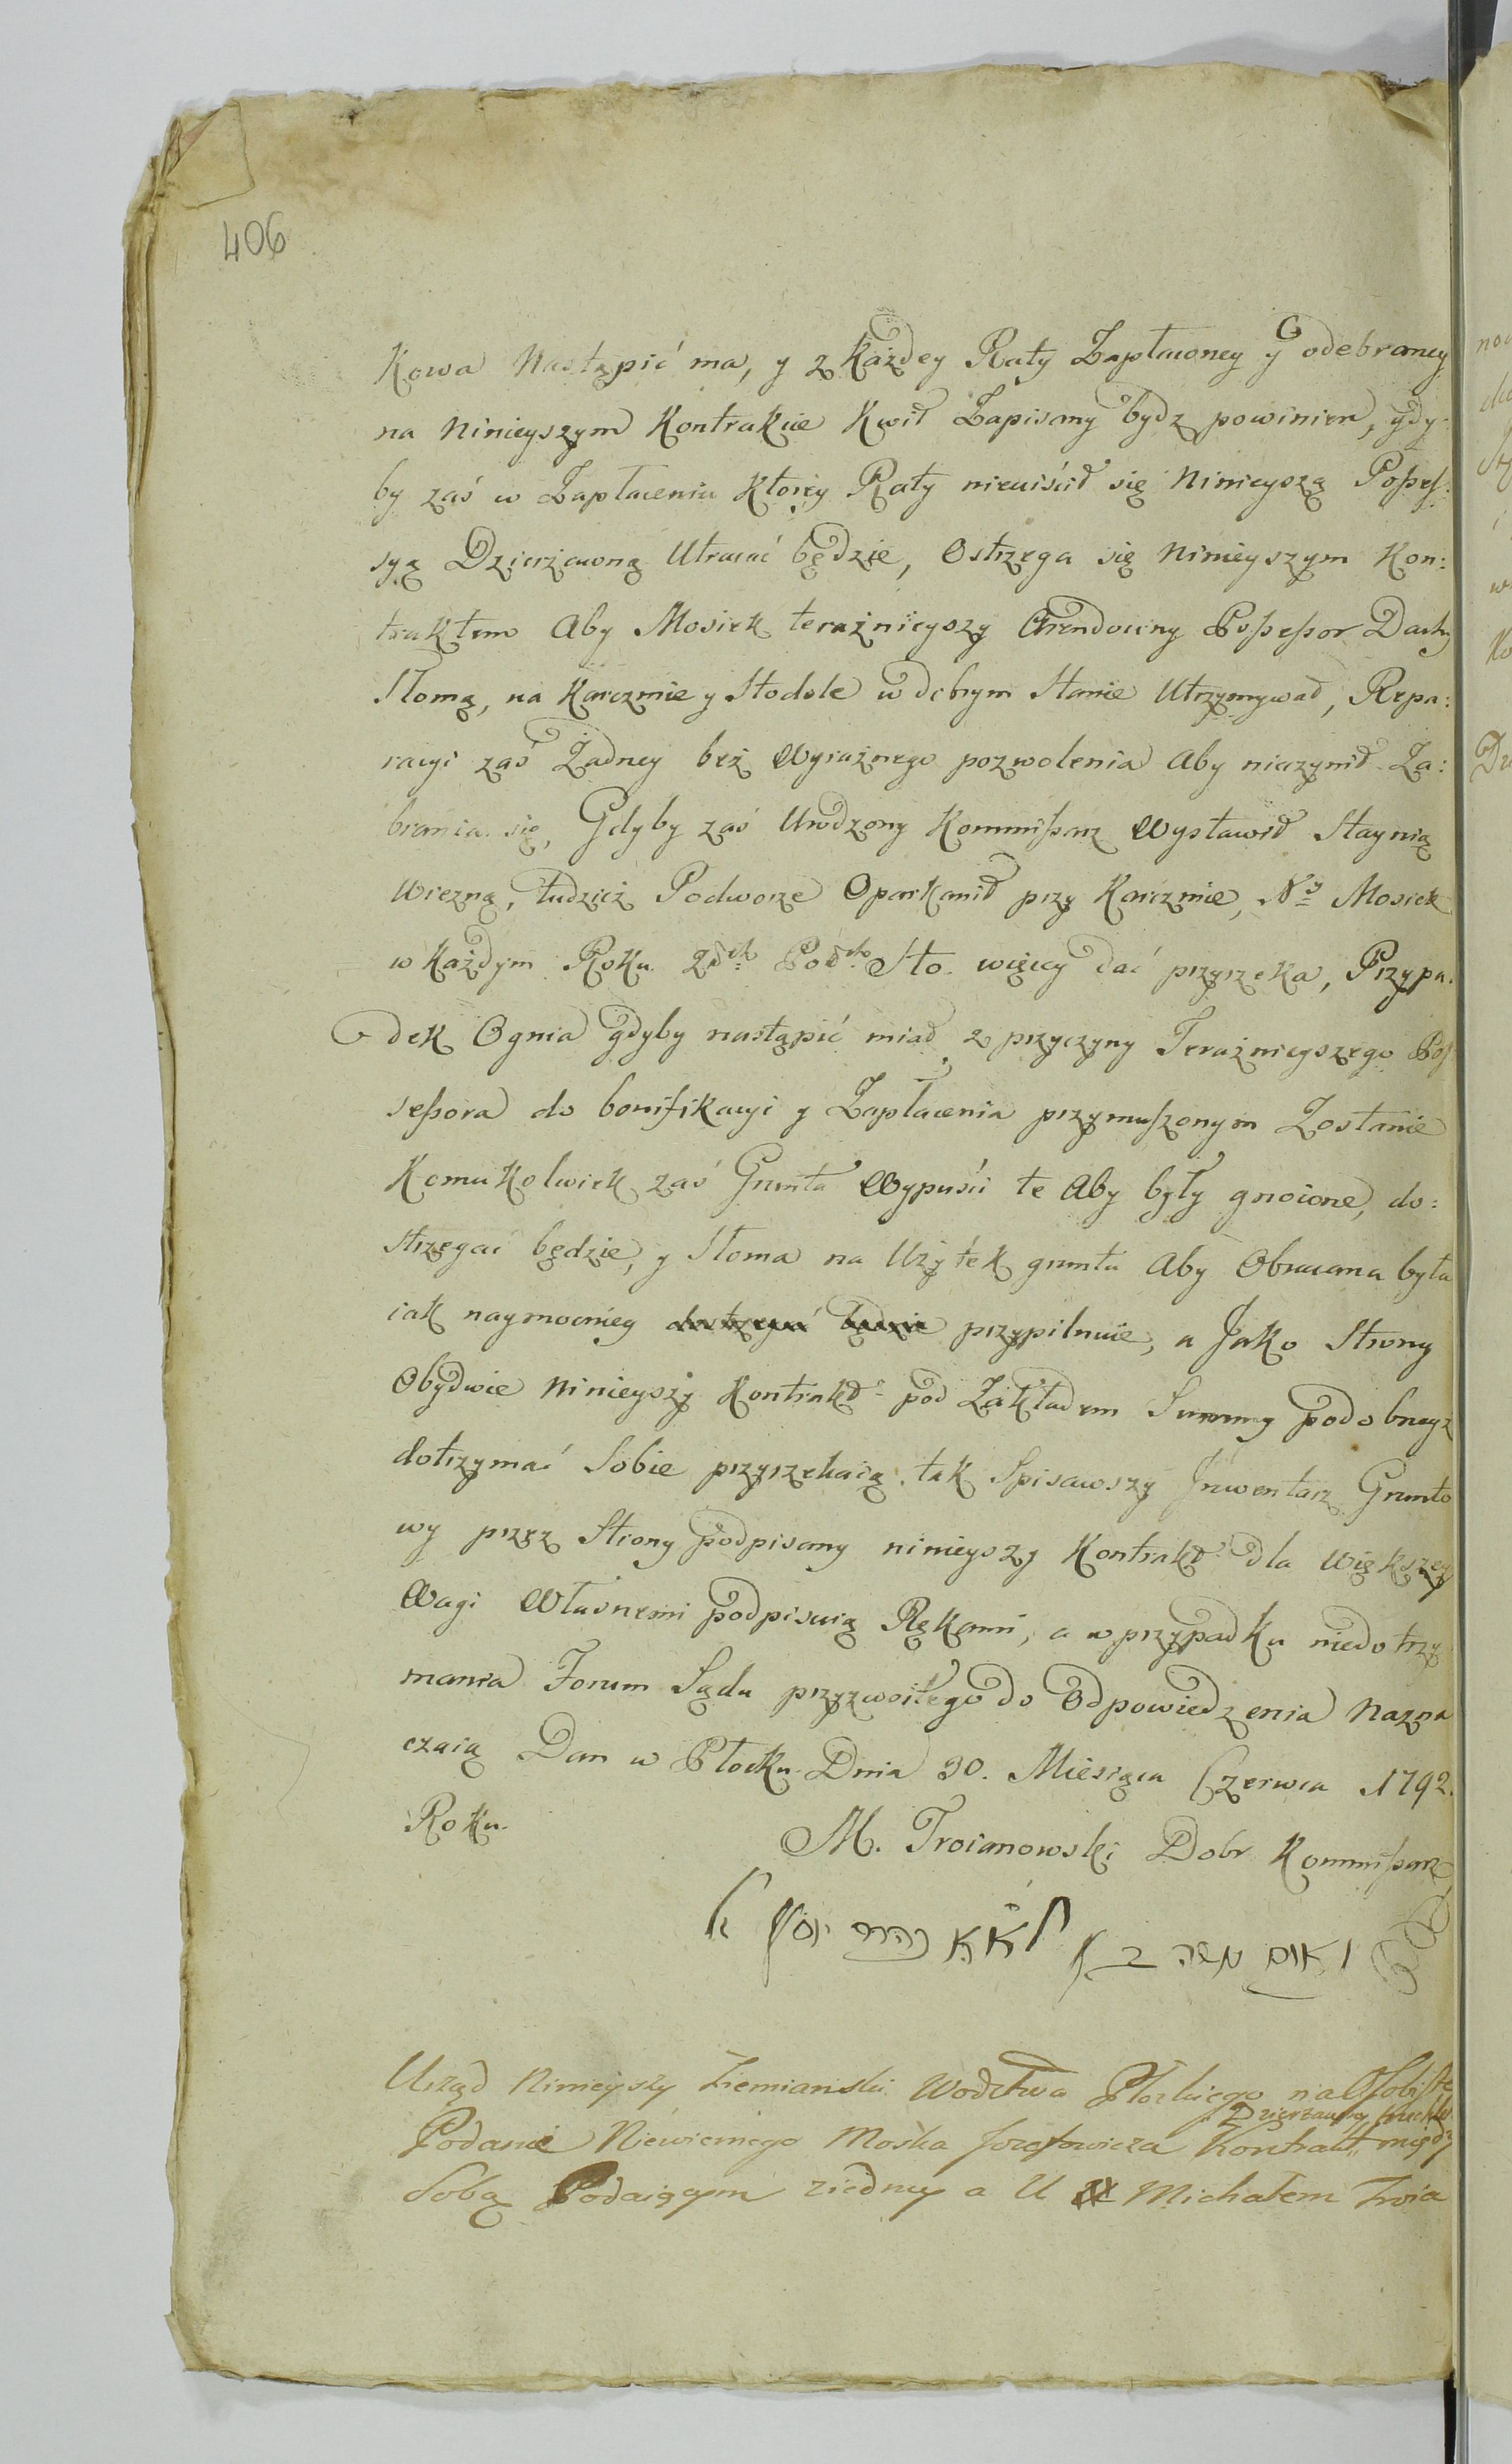 406
Kowa Nastąpić ma, y z Każdey Raty Zapłaconey y odebraney
na Ninieyszym Kontrakcie Kwit Zapisany bydz powinien, gdy-
by zaś w Zapłaceniu Którey Raty nieuiścił się Ninieyszą Posses:
syą Dzierżawną Utracać będzie, Ostrzega się Ninieyszym Kon:
traktem Aby Mosiek teraźnieyszy Arendowny Possessor Dachy
Słomą, na Karczmie y Stodole w dobrym Stanie Utrzymywał, Repa:
racyi zaś Żadney bez Wyraźnego pozwolenia Aby nieczynił Za:
brania się, Gdyby zaś Urodzony Kommissarz Wystawił Staynią
Wiezną, tudzież Podworze Oparkanił przy Karczmie, Nꝰ Mosiek
w Każdym Roku Sto więcey dać przyrzeka, Przypa:
dek Ognia gdyby nastąpić miał z przyczyny Teraźnieyszego Pos
sessora do bonifikacyi y Zapłacenia przymuszonym Zostanie
Komukolwiek zaś Grunta Wypuści te Aby były gnoione, do:
strzegać będzie, y Słoma na Użytek gruntu Aby Obracana była
iak naymocniey dostrzegać będzie przypilnuie, a Jako Strony
Obydwie Ninieyszy Kontrakt pod Zakładem Summy podobneyż
dotrzymać Sobie przyrzekaią tak Spisawszy Jnwentarz Grunto
wy przez Strony podpisany ninieyszy Kontrakt dla Większey
Wagi Własnemi podpisuią Rękami, a w przypadku niedotrzy
mania Forum Sądu przyzwoitego do Odpowiedzenia Nazna
czaią Dan w Płocku Dnia 30. Miesiąca Czerwca 1792.
Roku.
M. Troianowski Dobr Kommissarz
נאום משה ב
Urząd Ninieyszy Ziemianski Wodztwa Płockiego na Osobiste
Dzierżawny
Podanie Niewiernego Moska Jozefowicza Kontrakt między
Sobą Podaiącym ziedney a U Michałem Troia